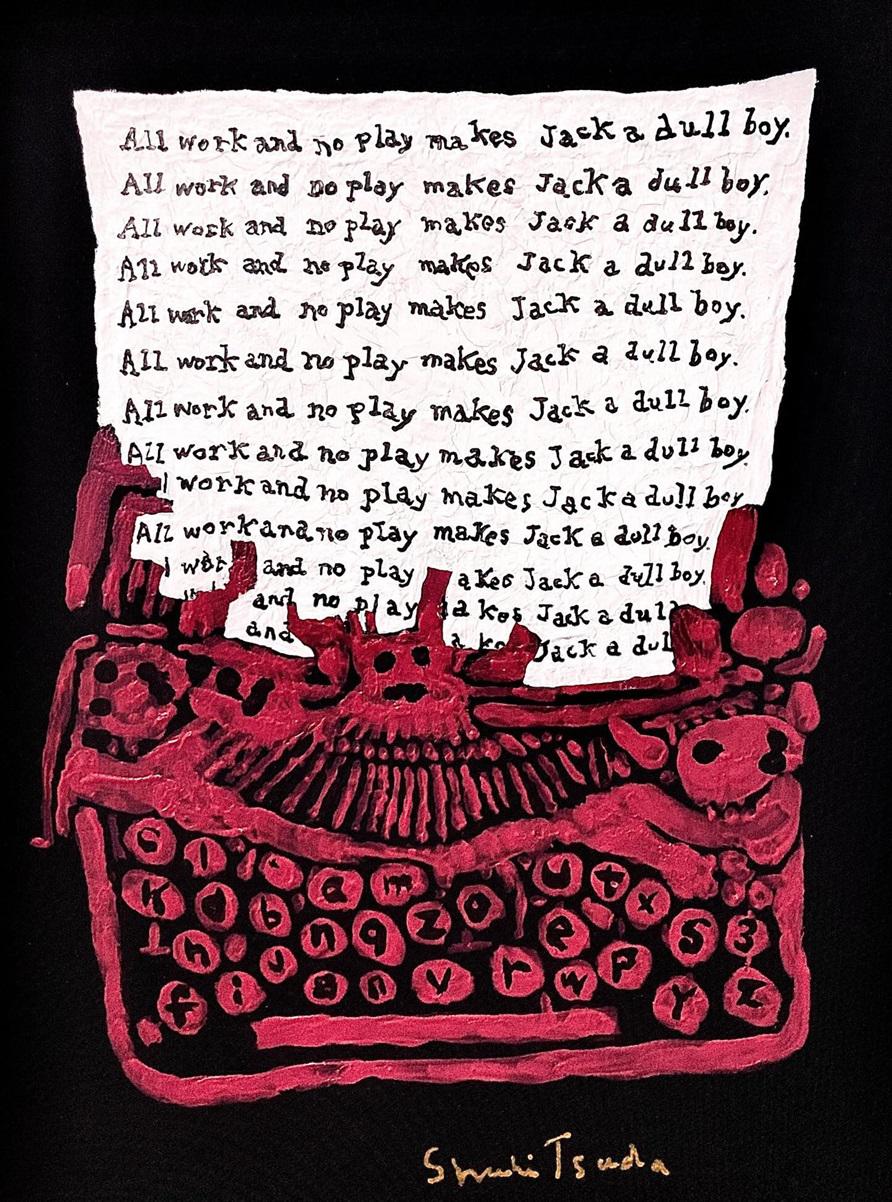 All work and no play makes Jack a dull boy.
All work and no play makes Jack a dull boy.
All work and no play makes Jack a dull boy.
All work and no play makes Jack a dull boy.
All work and no play makes Jack a dull boy.
All work and no play makes Jack a dull boy.
All work and no play makes Jack a dull boy.
All work and no play makes Jack a dull boy.
l work and no play makes Jack a dull boy
All work and no play makes Jack a dull boy.
l work and no play akes Jack a dull boy.
and no play akes Jack a dull
and a kes Jack a dul
a m u t x
K d b n q z o e s 3
h u a n v r w p
f i Y z
Tsuda